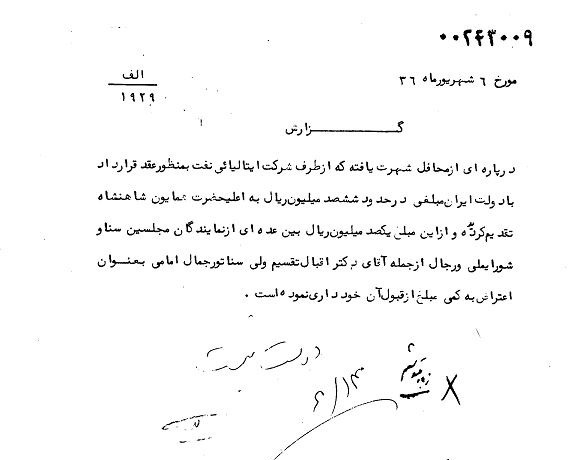 ۰۰۲۴۳۰۰۹
مورخ ۶ شهریورماه ۳۶
الف
۱۹۲۹
گـــــزارش
درپاره ای ازمحافل شهرت یافته که ازطرف شرکت ایتالیائی نفت بمنظورعقد قرارداد
بادولت ایران مبلغی درحدود ششصد میلیون ریال به اعلیحضرت همایون شاهنشاه
تقدیم کرده و ازاین مبلغ یکصد میلیون ریال بین عده ای ازنمایندگان مجلسین سنا و
شورایملی ورجال ازجمله آقای دکتر اقبال تقسیم ولی سناتورجمال امامی بعنوان
اعتراض به کمی مبلغ ازقبول آن خودداری نموده است .
۶/۱۳